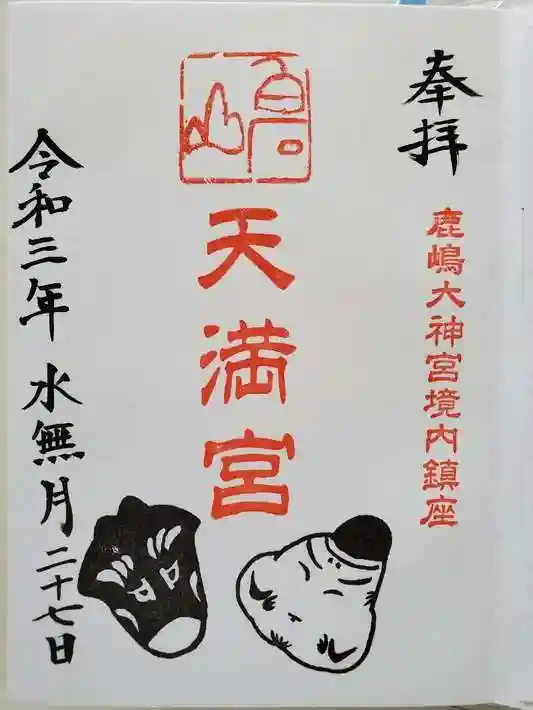 奉拝
鹿嶋大神宮境内鎮座
天満宮
令和三年水無月二十七日